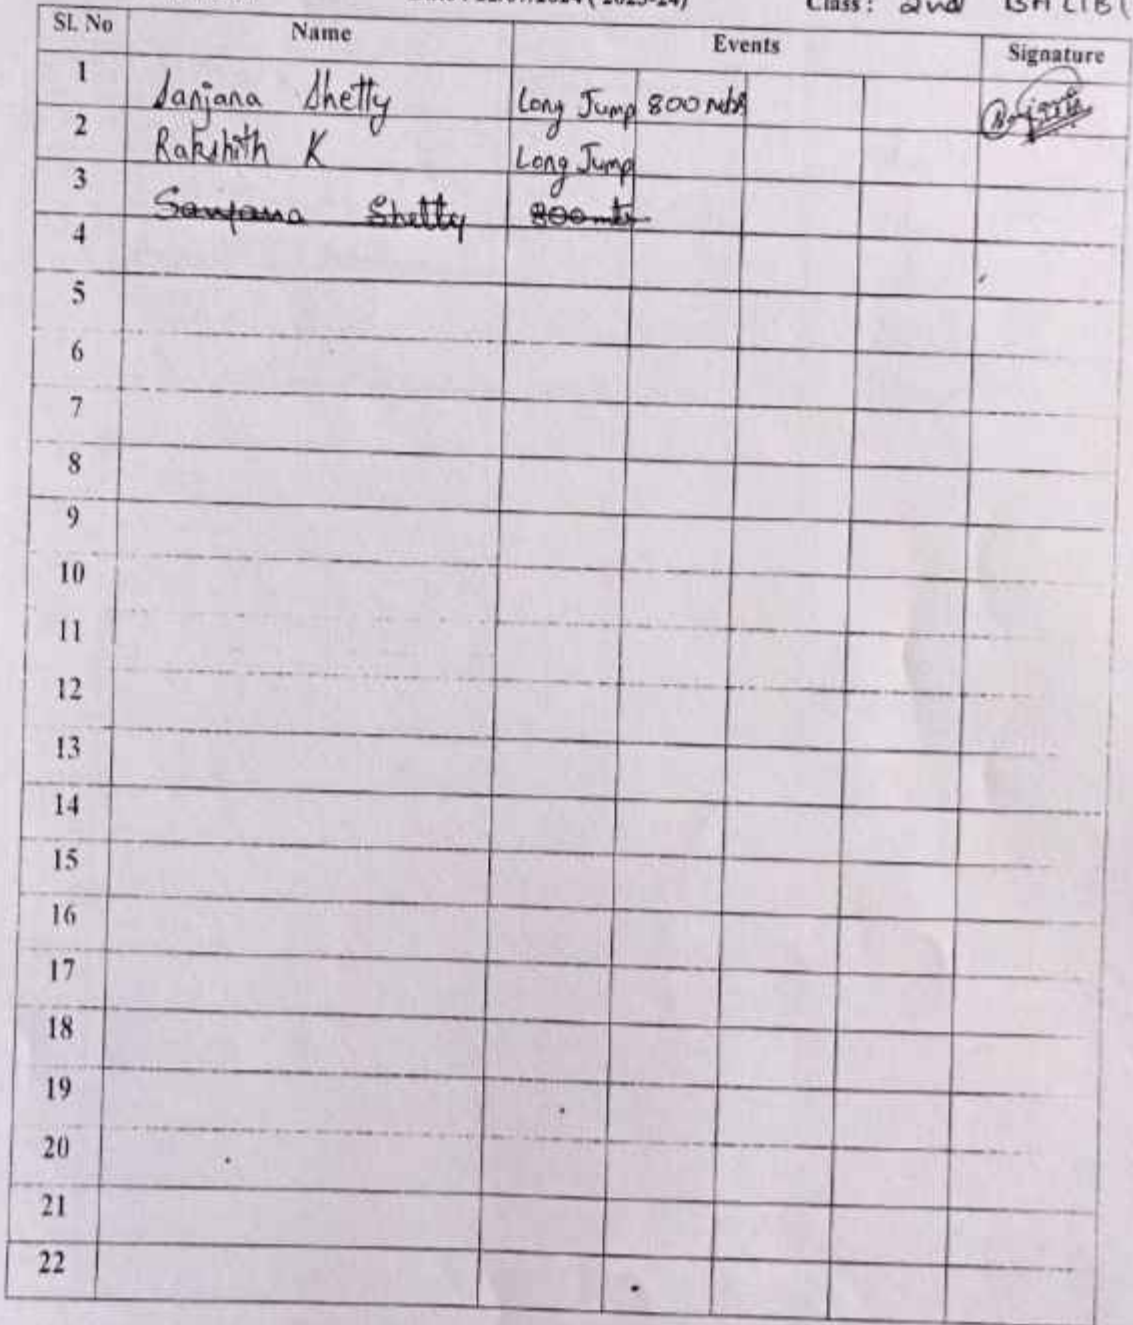 2024 ( 2023-24) Class: 2nd
SL No Name Events Signature
1 Sanjana Shetty Long Jump 800 mtrs
2 Rakshith K Long Jump
3 Sanjana Shetty 800 mts
4
5
6
7
8
9
10
11
12
13
14
15
16
17
18
19
20
21
22